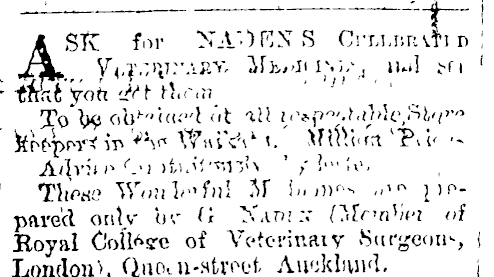 ASK for NADEN'S CELEBRATED
VETERINARY MEDICINES, and see
that you get them
To be obtained at all respectable Store
keepers in the
These Wonderful Medicines are pre-
pared only by G NADEN (Member of
Royal College of Veterinary Surgeons,
London), Queen-street Auckland.